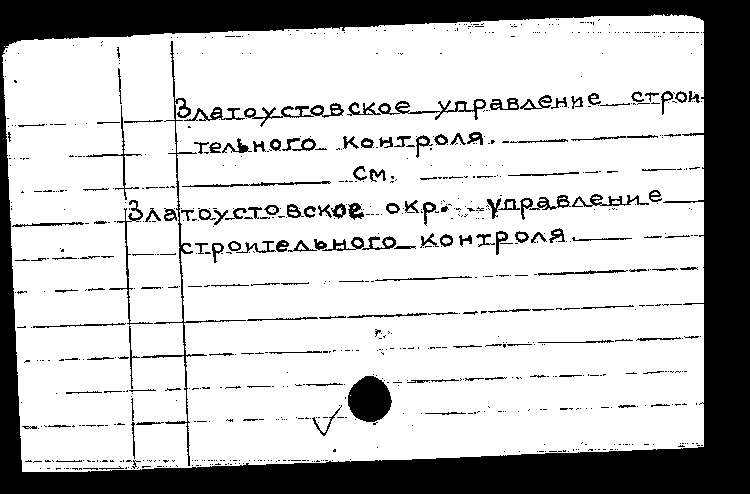 Златоустовское управление строи-
тельного контроля.
См.
Златоустовское окр. управление
строительного контроля.